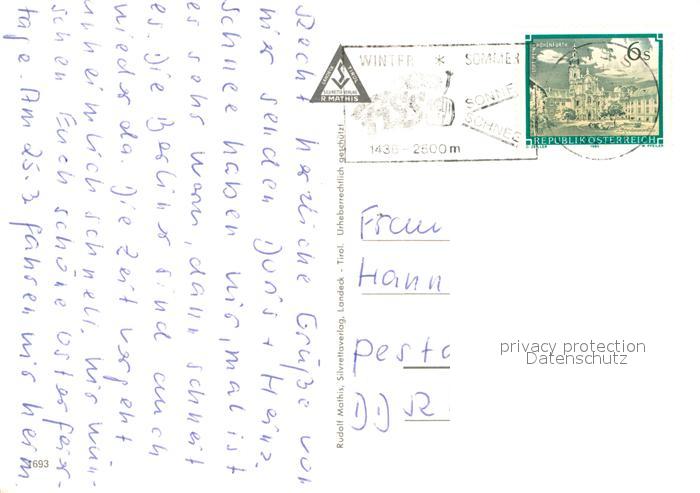 Recht herzliche Grüße von
hier senden Doris + Heinz.
Schnee haben wir, mal ist
es sehr warm, dann schneit
es. Die Berliner sind auch
wieder da. Die Zeit vergeht
unheimlich schnell. Wir wün-
schen Euch schöne Osterfeier-
tage. Am 25.3 fahren wir heim.
1693
Rudolf Mathis, Silvrettaverlag, Landeck - Tirol. Urheberrechtlich geschützt!
SILVRETTA-VERLAG
R MATHIS
WINTER * SOMMER
SONNE
SCHNEE
1436-2600m
6s
REPUBLIK ÖSTERREICH
Frau
Hann
Pesta
DDR
privacy protection
Datenschutz